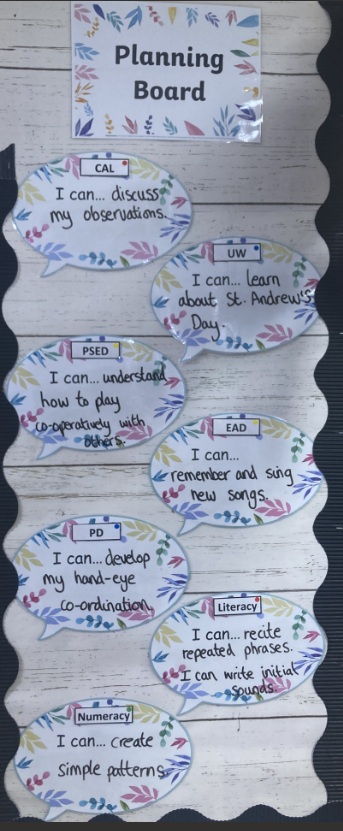 Planning
Board
CAL
I can... discuss
my observations.
UW
I can... learn
about St. Andrew's
Day.
PSED
I can... understand
how to play
co-operatively with
others.
EAD
I can...
remember and sing
new songs.
PD
I can... develop
my hand-eye
co-ordination.
Literacy
I can... recite
repeated phrases.
I can write initial
sounds.
Numeracy
I can... create
simple patterns.